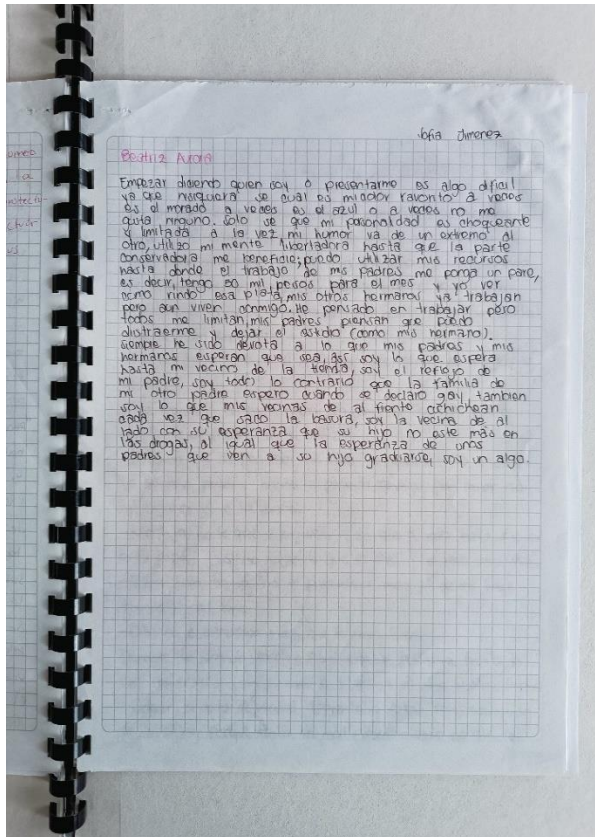 Sofia Jimenez
Beatriz Aurora
Empezar diciendo quien soy o presentarme es algo dificil
ya que nisiquiera se cual es mi color favorito a veces
es el morado a veces es el azul o a veces no me
gusta ninguno. solo se que mi personalidad es choqueante
y limitada a la vez, mi humor va de un extremo al
otro, utilizo mi mente libertadora hasta que la parte
conservadora me beneficie; puedo utilizar mis recursos
hasta donde el trabajo de mis padres me ponga un pare,
es decir, tengo 50 mil pesos para el mes y yo ver
como rindo esa plata, mis otros hermanos ya trabajan
pero aun viven conmigo. He pensado en trabajar pero
todos me limitan, mis padres piensan que puedo
distraerme y dejar el estudio (como mis hermano).
Siempre he sido devota a lo que mis padres y mis
hermanos esperan que sea, asi soy lo que espera
hasta mi vecino de la tienda, soy el reflejo de
mi padre, soy todo lo contrario que la familia de
mi otro padre espero cuando se declaro gay, tambien
soy lo que mis vecinas de al frente chichean
cada vez que saco la basura, soy la vecina de al
lado con su esperanza que su hijo no este más en
las drogas, al igual que la esperanza de unos
padres que ven a su hijo graduarse, soy un algo.